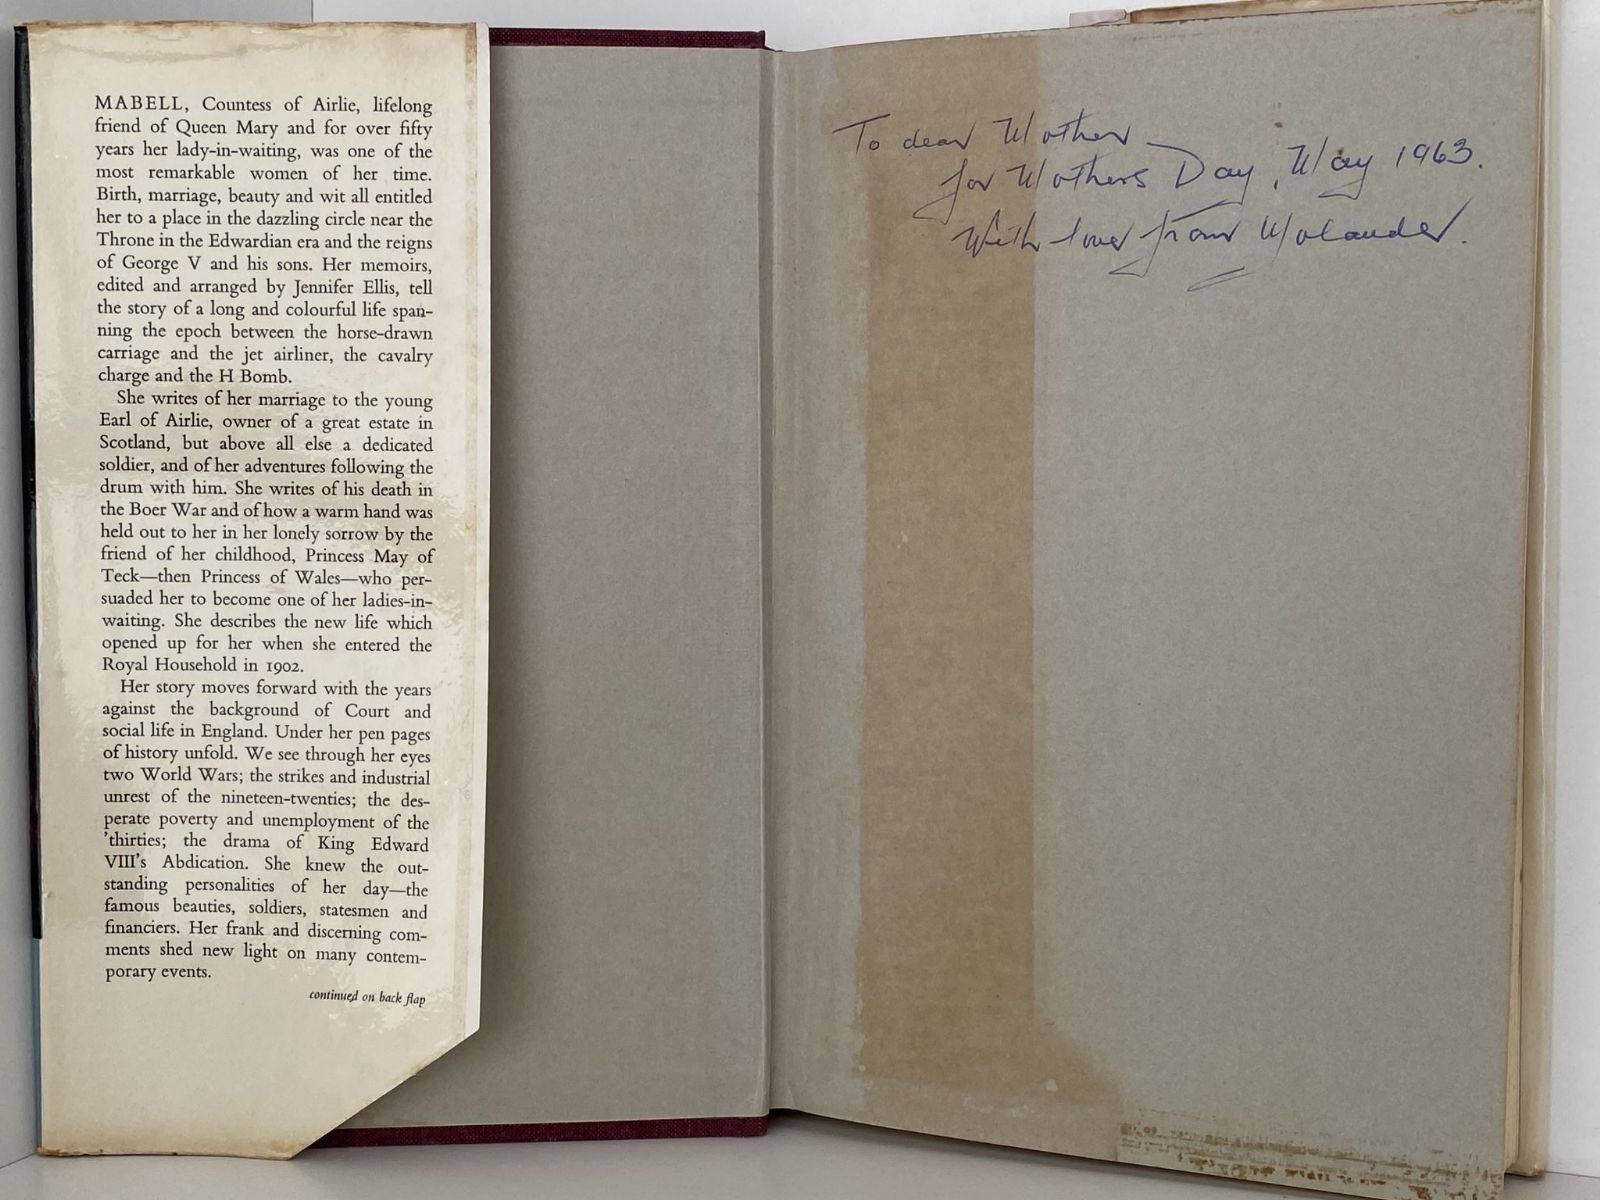 MABELL, Countess of Airlie, lifelong
friend of Queen Mary and for over fifty
years her lady-in-waiting, was one of the
most remarkable women of her time.
Birth, marriage, beauty and wit all entitled
her to a place in the dazzling circle near the
Throne in the Edwardian era and the reigns
of George V and his sons. Her memoirs,
edited and arranged by Jennifer Ellis, tell
the story of a long and colourful life span-
ning the epoch between the horse-drawn
carriage and the jet airliner, the cavalry
charge and the H Bomb.
She writes of her marriage to the young
Earl of Airlie, owner of a great estate in
Scotland, but above all else a dedicated
soldier, and of her adventures following the
drum with him. She writes of his death in
the Boer War and of how a warm hand was
held out to her in her lonely sorrow by the
friend of her childhood, Princess May of
Teck—then Princess of Wales—who per-
suaded her to become one of her ladies-in-
waiting. She describes the new life which
opened up for her when she entered the
Royal Household in 1902.
Her story moves forward with the years
against the background of Court and
social life in England. Under her pen pages
of history unfold. We see through her eyes
two World Wars; the strikes and industrial
unrest of the nineteen-twenties; the des-
perate poverty and unemployment of the
'thirties; the drama of King Edward
VIII's Abdication. She knew the out-
standing personalities of her day—the
famous beauties, soldiers, statesmen and
financiers. Her frank and discerning com-
ments shed new light on many contem-
porary events.
continued on back flap
To dear Mother
for Mothers Day, May 1963.
With love from